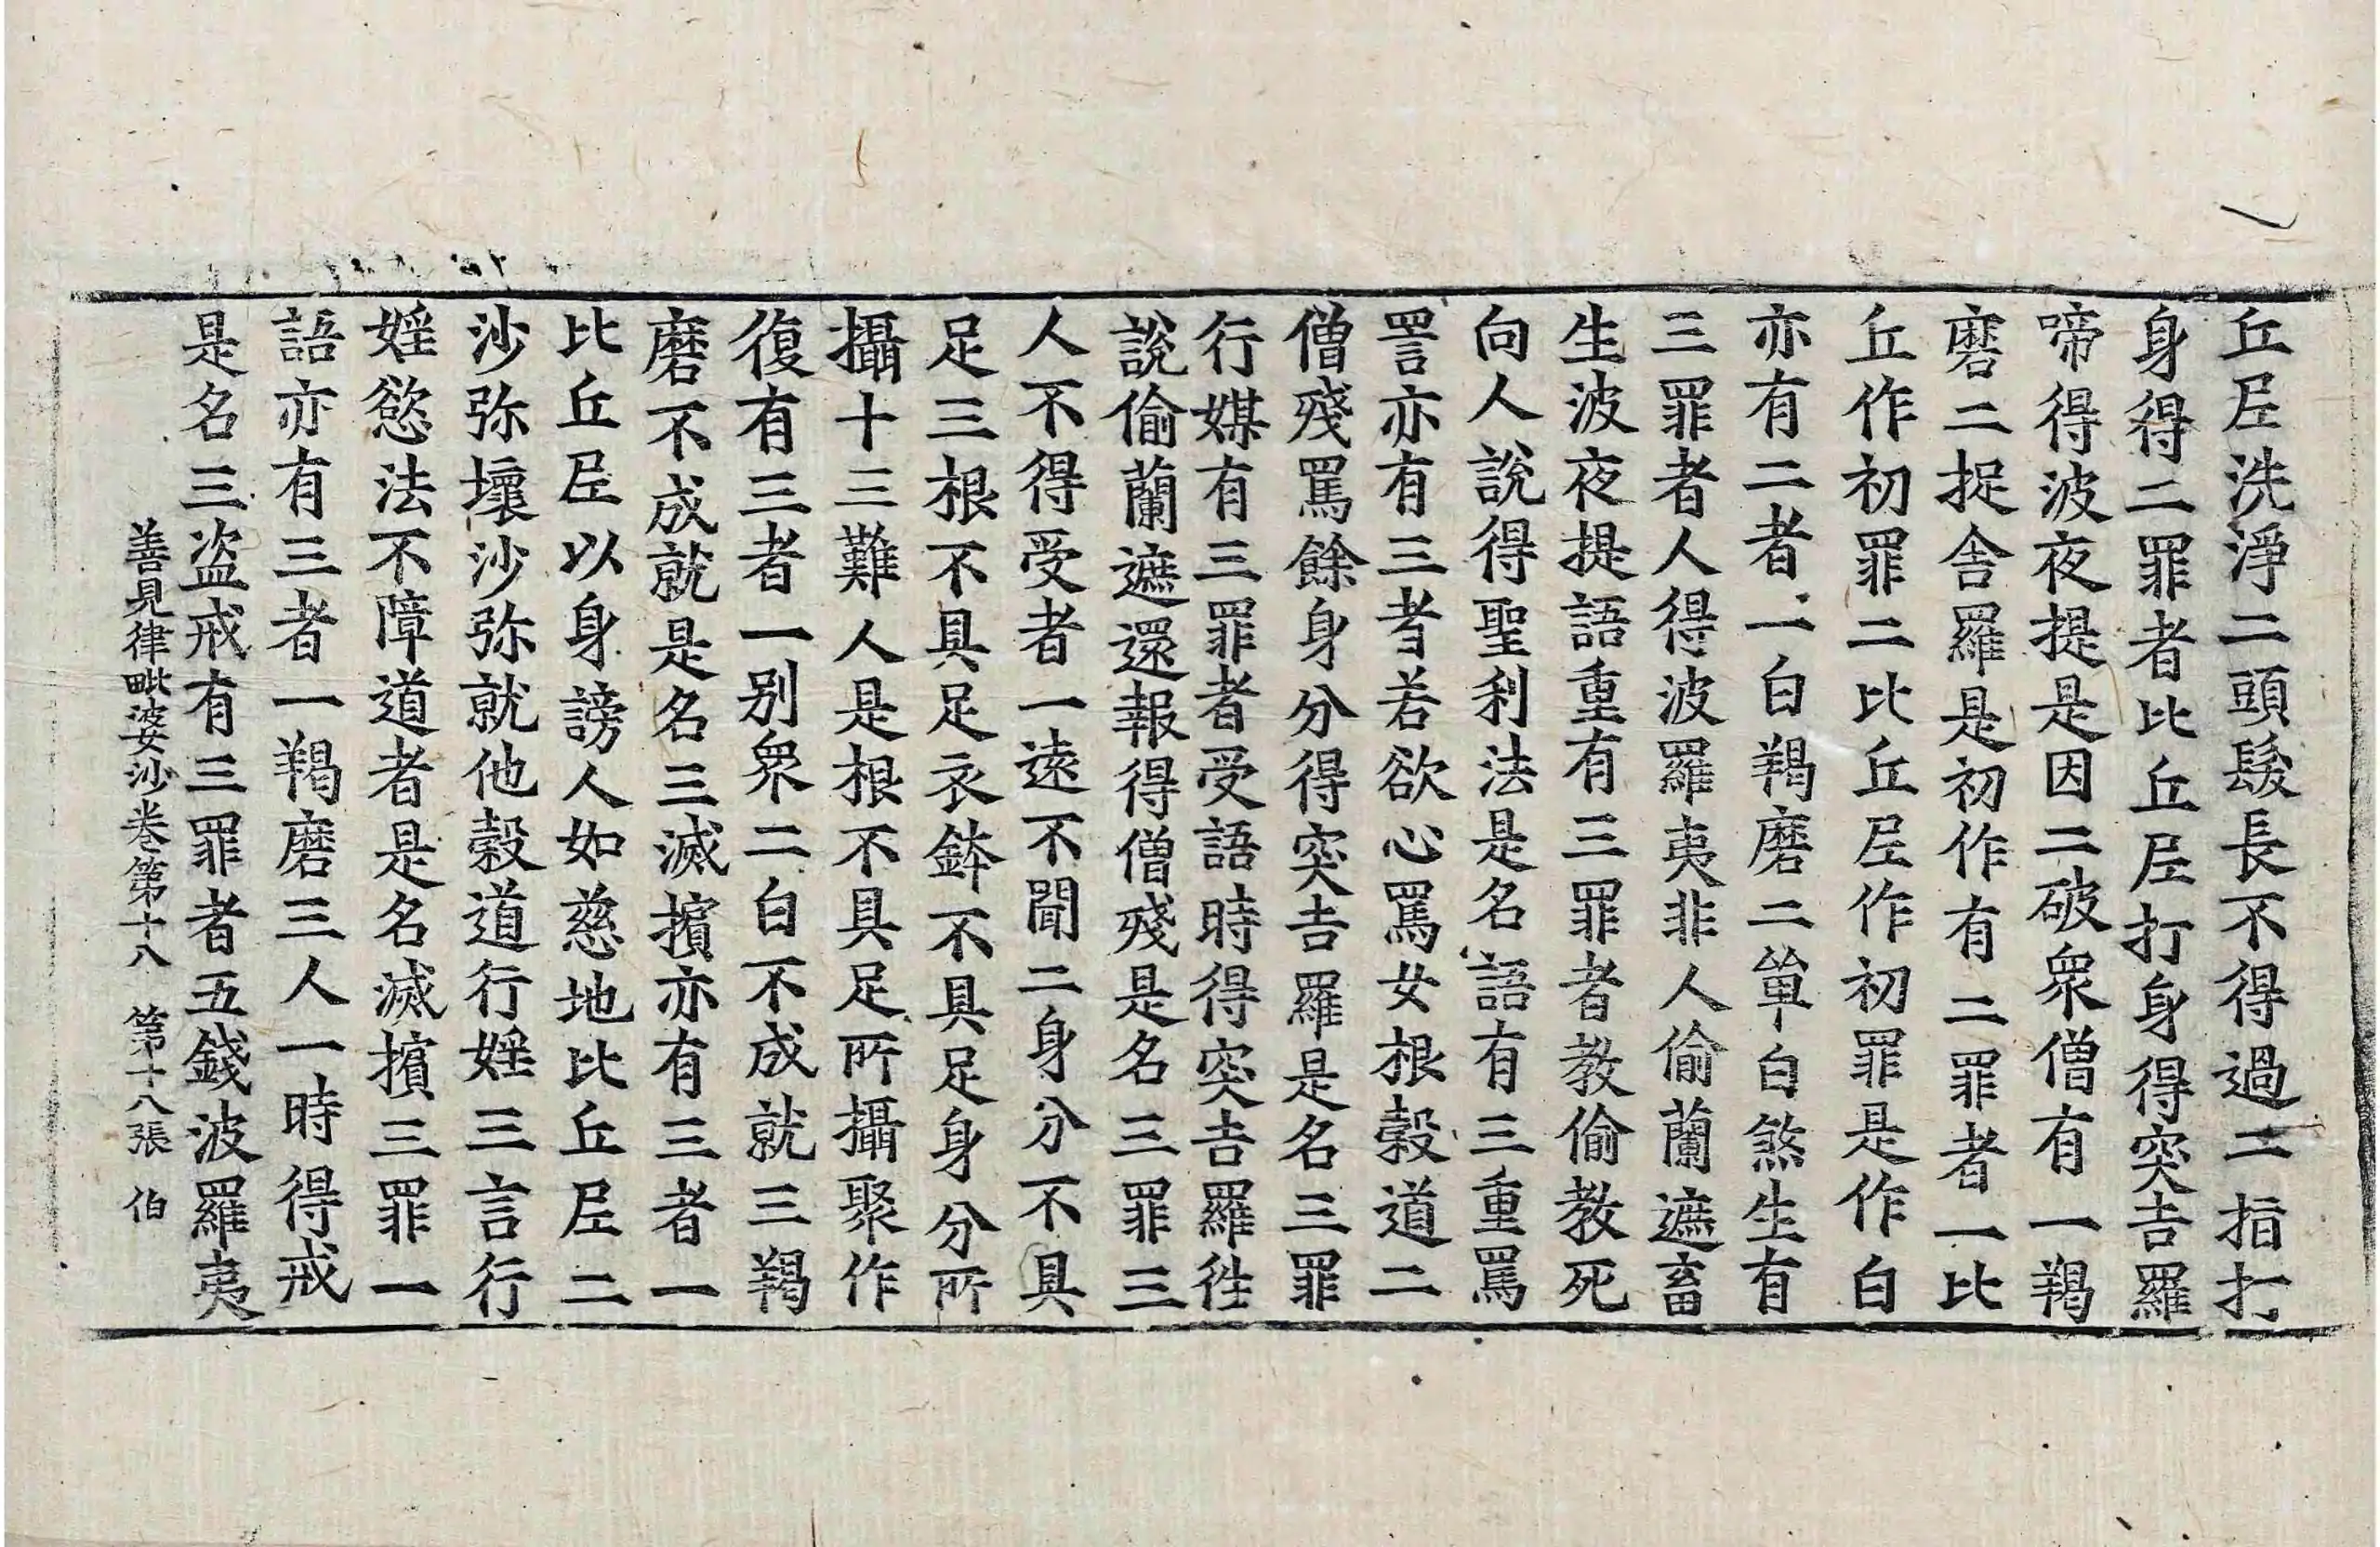 丘尼洗淨二頭髮長不得過二指打
身得二罪者比丘尼打身得突吉羅
啼得波夜提是因二破衆僧有一羯
磨二捉舍羅是初作有二罪者一比
丘作初罪二比丘尼作初罪是作白
亦有二者一白羯磨二單白煞生有
三罪者人得波羅夷非人偷蘭遮畜
生波夜提語重有三罪者教偷教死
向人說得聖利法是名語有三重罵
詈亦有三者若欲心罵女根穀道二
僧殘罵餘身分得突吉羅是名三罪
行媒有三罪者受語時得突吉羅徃
說偷蘭遮還報得僧殘是名三罪三
人不得受者一遠不聞二身分不具
足三根不具足衣鉢不具足身分所
攝十三難人是根不具足所攝聚作
復有三者一別衆二白不成就三羯
磨不成就是名三滅擯亦有三者一
比丘尼以身謗人如慈地比丘尼二
沙弥壞沙弥就他穀道行婬三言行
婬慾法不障道者是名滅擯三罪一
語亦有三者一羯磨三人一時得戒
是名三盜戒有三罪者五錢波羅夷
善見律毗婆沙卷第十八 第十八張 伯